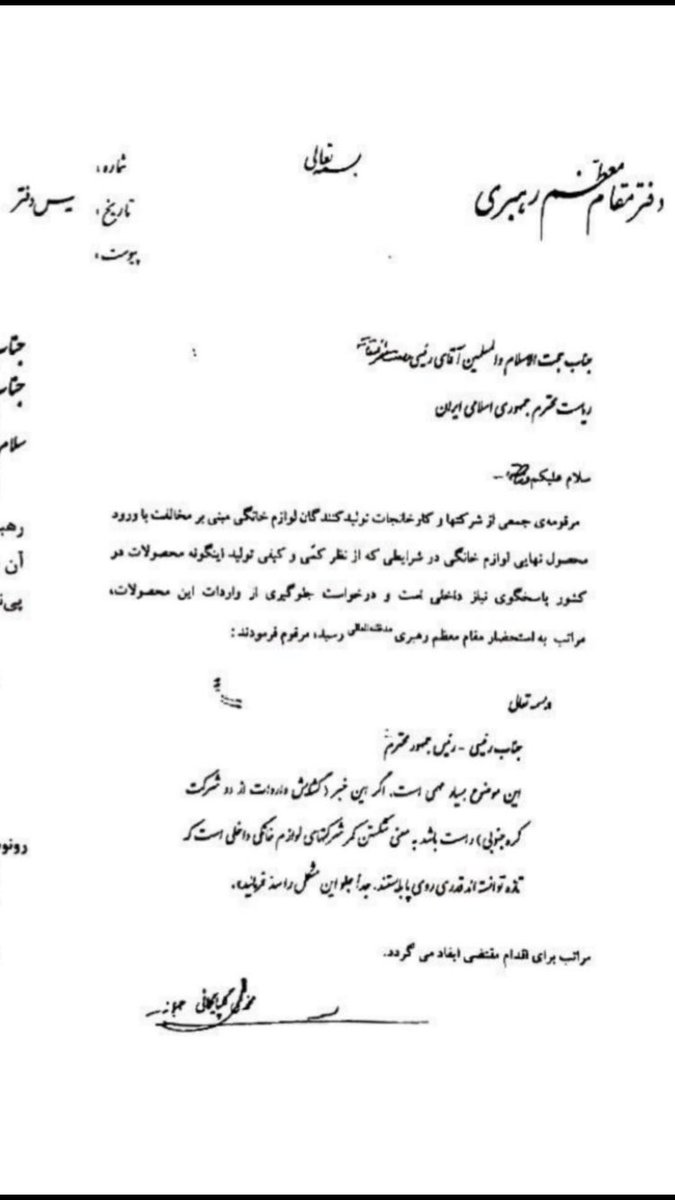 بسمه تعالی
دفتر مقام معظم رهبری
شماره :
تاریخ :
پیوست :
یس دفتر
جناب حجت الاسلام والمسلمین آقای رئیسی
ریاست محترم جمهوری اسلامی ایران
سلام علیکم
مرقومه‌ی جمعی از شرکتها و کارخانجات تولیدکنندگان لوازم خانگی مبنی بر مخالفت با ورود
محصول نهایی لوازم خانگی در شرایطی که از نظر کمّی و کیفی تولید اینگونه محصولات در
کشور پاسخگوی نیاز داخلی است و درخواست جلوگیری از واردات این محصولات،
مراتب به استحضار مقام معظم رهبری مدظله‌العالی رسید، مرقوم فرمودند :
«بسمه تعالی
جناب رئیسی - رئیس جمهور محترم
این موضوع بسیار مهمی است. اگر این خبر (گشایش واردات از دو شرکت
کره جنوبی) راست باشد به معنی شکستن کمر شرکتهای لوازم خانگی داخلی است که
تازه توانسته اند قدری روی پا بایستند. جداً جلو این مشکل را سد فرمائید».
مراتب برای اقدام مقتضی ایفاد می گردد.
محمدی گلپایگانی
جناب
جناب
سلام
رهب
آن
پی‌ن
رونو